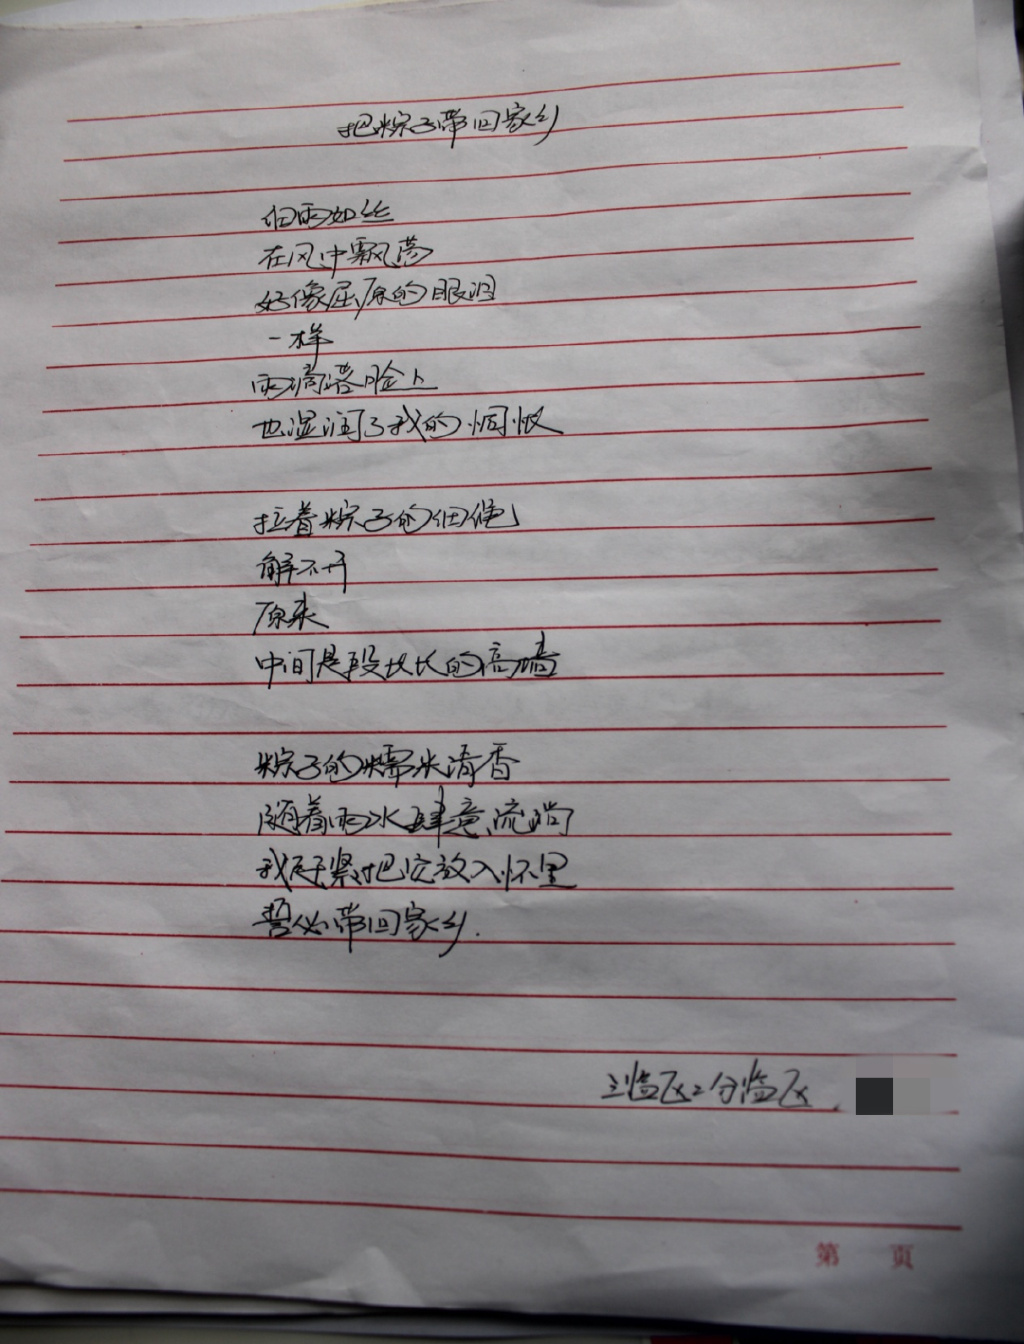 把粽子带回家乡
细雨如丝
在风中飘荡
好像屈原的眼泪
一样
雨滴落脸上
也湿润了我的惆怅
拉着粽子的细绳
解不开
原来
中间是段长长的高墙
粽子的糯米清香
随着雨水肆意流淌
我赶紧把它放入怀里
誓必带回家乡.
三监区二分监区.
第 页